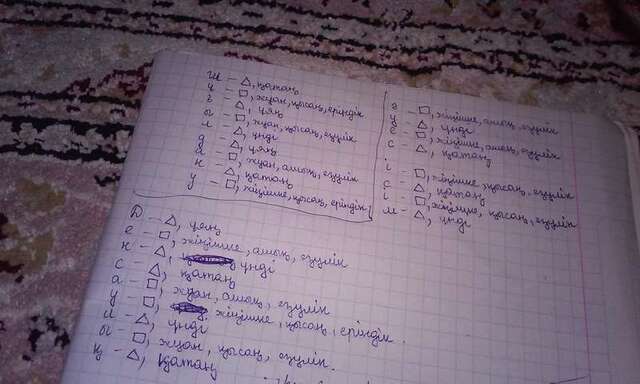 ш – △, қатаң
ұ – □, жуан, қысаң, еріндік
г – △, ұяң
ы – □, жуан, қысаң, езулік
л – △, үнді
д – △, ұяң
а – □, жуан, ашық, езулік
к – △, қатаң
ү – □, жіңішке, қысаң, еріндік
ә – □, жіңішке, ашық, езулік
у – △, үнді
е – □, жіңішке, ашық, езулік
с – △, қатаң
і – □, жіңішке, қысаң, езулік
с – △, қатаң
і – □, жіңішке, қысаң, езулік
м – △, үнді
Д – △, ұяң
е – □, жіңішке, ашық, езулік
н – △, үнді
с – △, қатаң
а – □, жуан, ашық, езулік
у – □, жіңішке, қысаң, еріндік.
л – △, үнді
ы – □, жуан, қысаң, езулік.
қ – △, қатаң